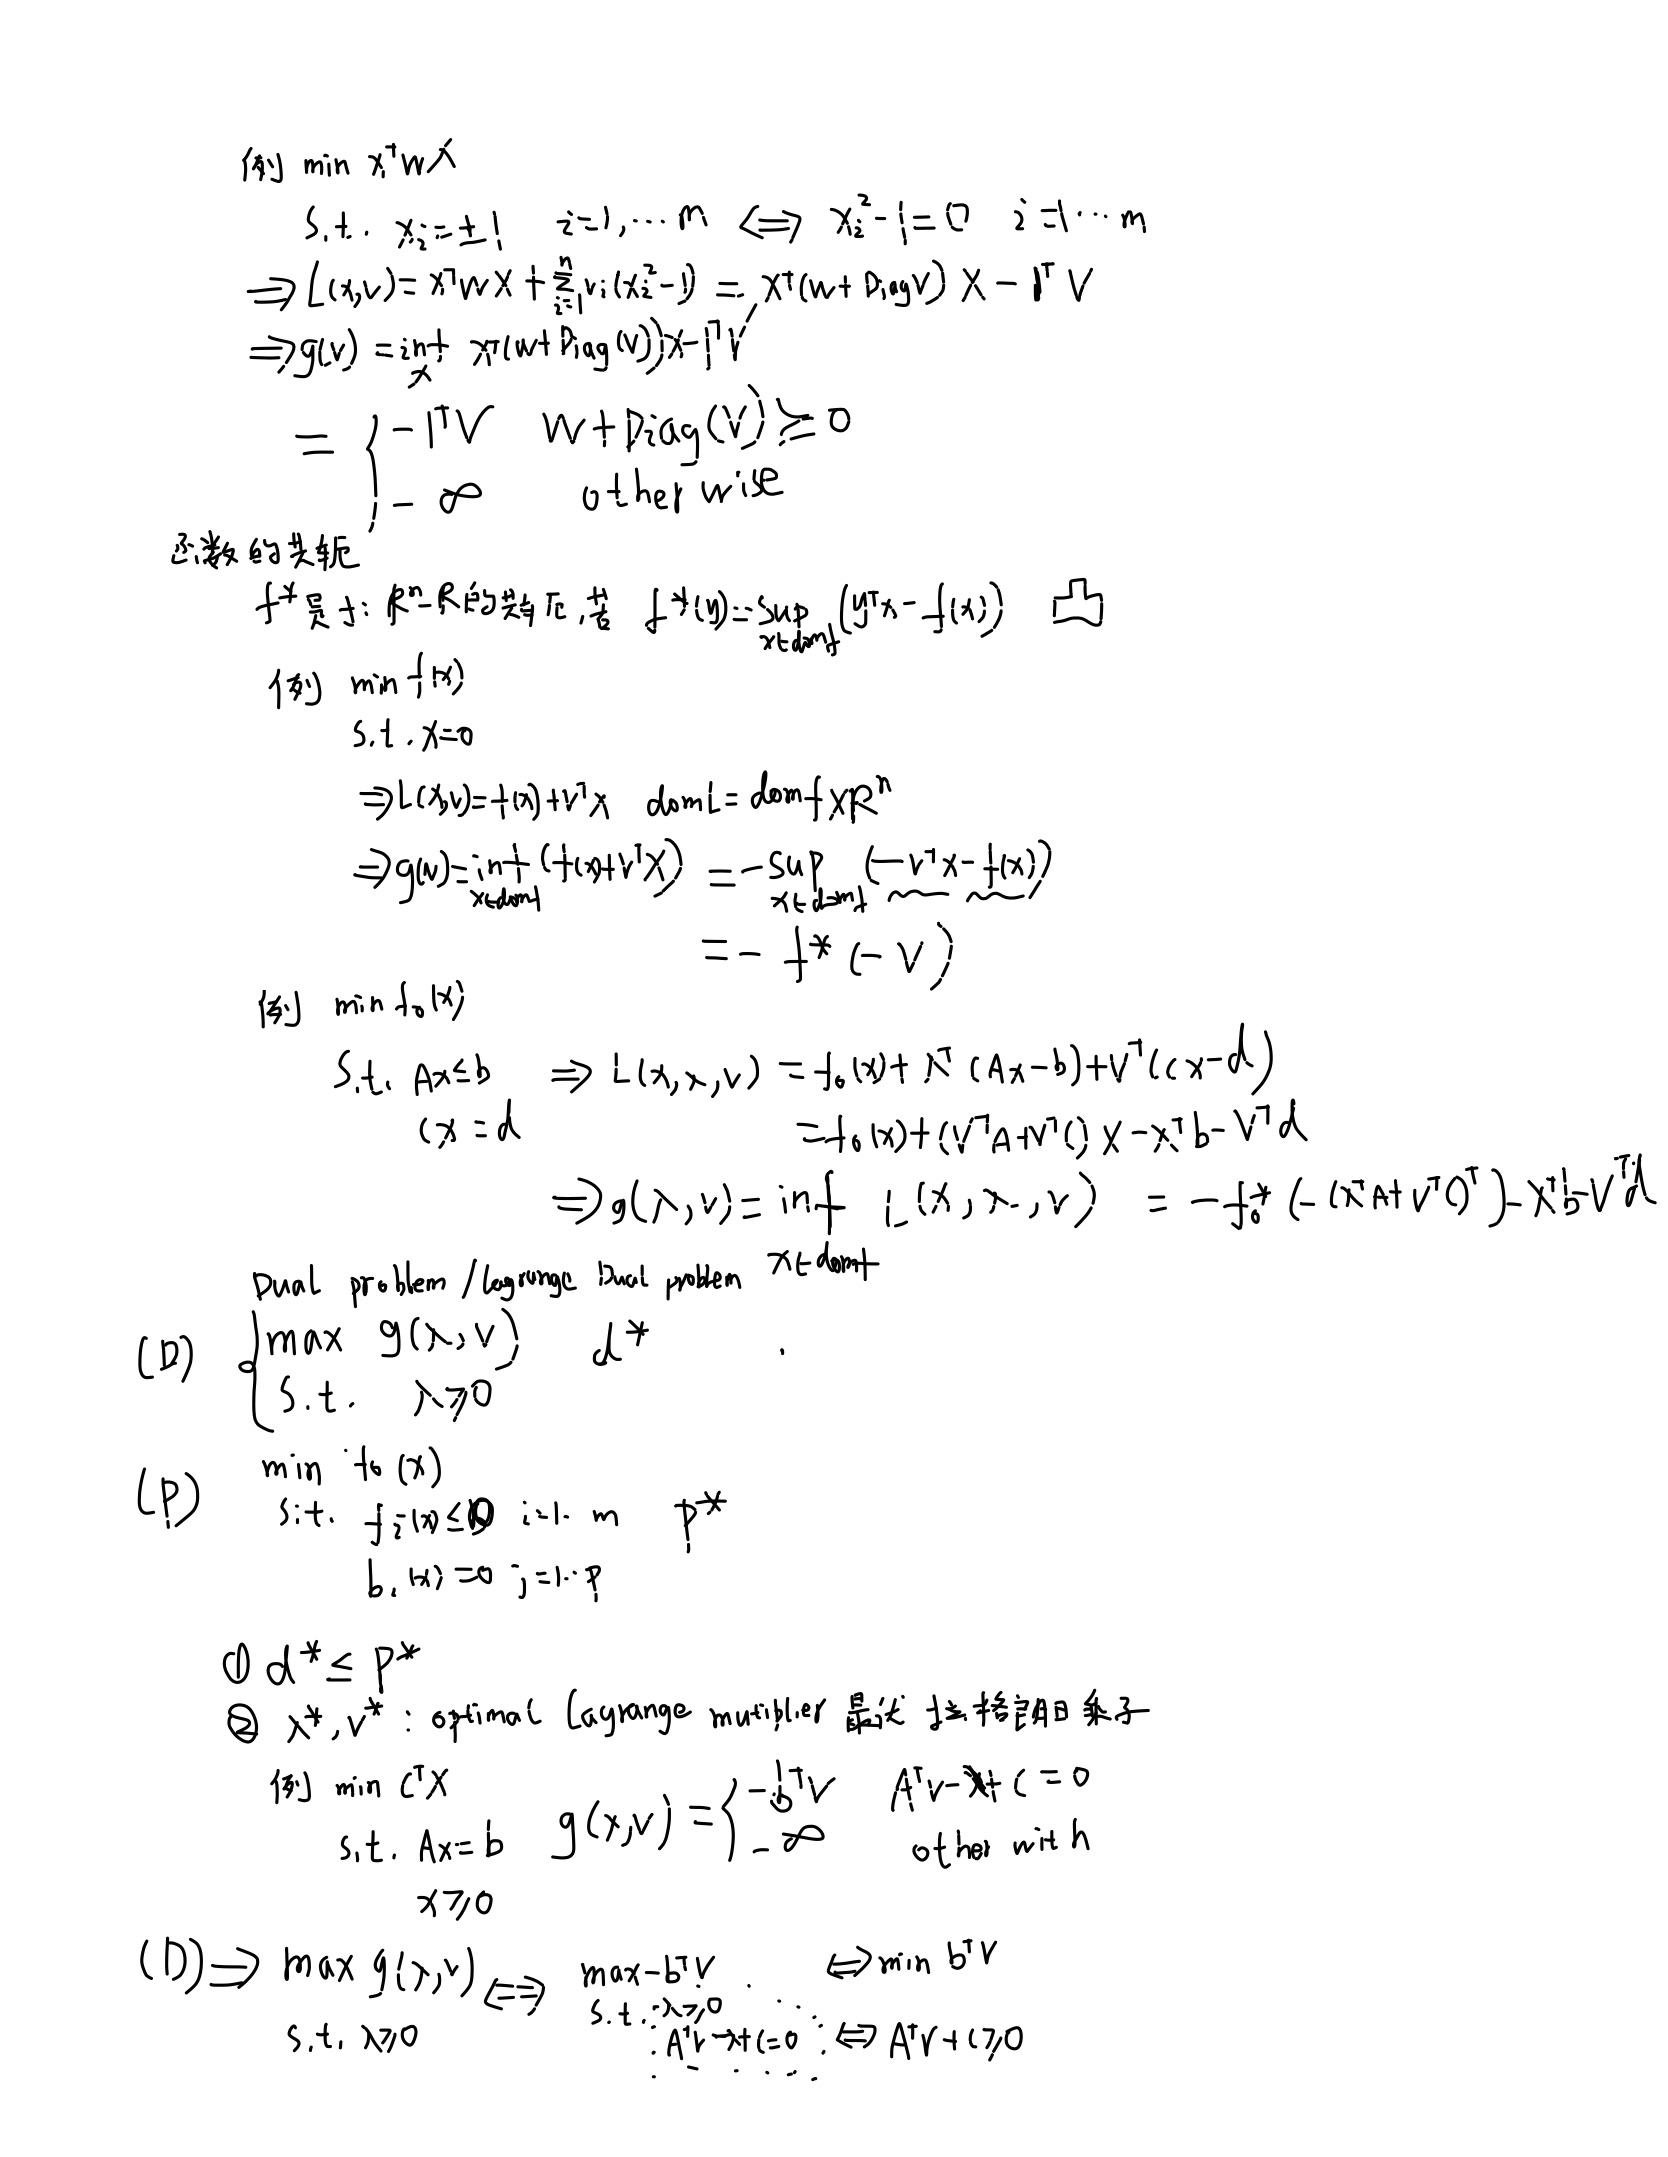 例 min xᵀWx
s.t. xᵢ=±1 i=1,…m ⟺ xᵢ²-1=0 i=1…m
⇒L(x,v)=xᵀWX+∑ⁿᵢ₌₁vᵢ(xᵢ²-1) = xᵀ(W+Diag v)X-1ᵀV
⇒g(v)=inf_x xᵀ(W+Diag(v))x-1ᵀV
= { -1ᵀV W+Diag(V)≽0
-∞ otherwise
函数的共轭
f*是f: Rⁿ-R的共轭,若 f*(y)=sup_{x∈domf}(yᵀx-f(x)) 凸
例 min f(x)
s.t. x=0
⇒L(x,v)=f(x)+vᵀx domL=domf×Rⁿ
⇒g(v)=inf_{x∈domf}(f(x)+vᵀX) =-sup_{x∈domf}(-vᵀx-f(x))
=-f*(-v)
例 min f₀(x)
S.t. Ax≤b ⇒ L(x,λ,v) =f₀(x)+λᵀ(Ax-b)+Vᵀ(Cx-d)
Cx=d =f₀(x)+(VᵀA+VᵀC)X-λᵀb-Vᵀd
⇒g(λ,v)=inf_{x∈domf} L(x,λ,v) = -f₀*(-(λᵀA+VᵀC)ᵀ)-λᵀb-Vᵀd
Dual problem/Lagrange Dual problem
(D) { max g(λ,v) d*
S.t. λ≥0
(P) min f₀(x)
s.t. fᵢ(x)≤0 i=1·· m P*
bᵢ(x)=0 j=1··p
① d*≤P*
② λ*,v*: optimal Lagrange mutiblier 最优拉格朗日乘子
例 min CᵀX g(x,v)= { -bᵀv Aᵀv-λ+C=0
s.t. Ax=b -∞ other with
x≥0
(D)⇒ max g(λ,v) ⟺ max-bᵀV ⟺ min bᵀv
s.t. λ≥0 s.t. λ≥0
Aᵀv-λ+C=0 ⟺ AᵀV+C≥0